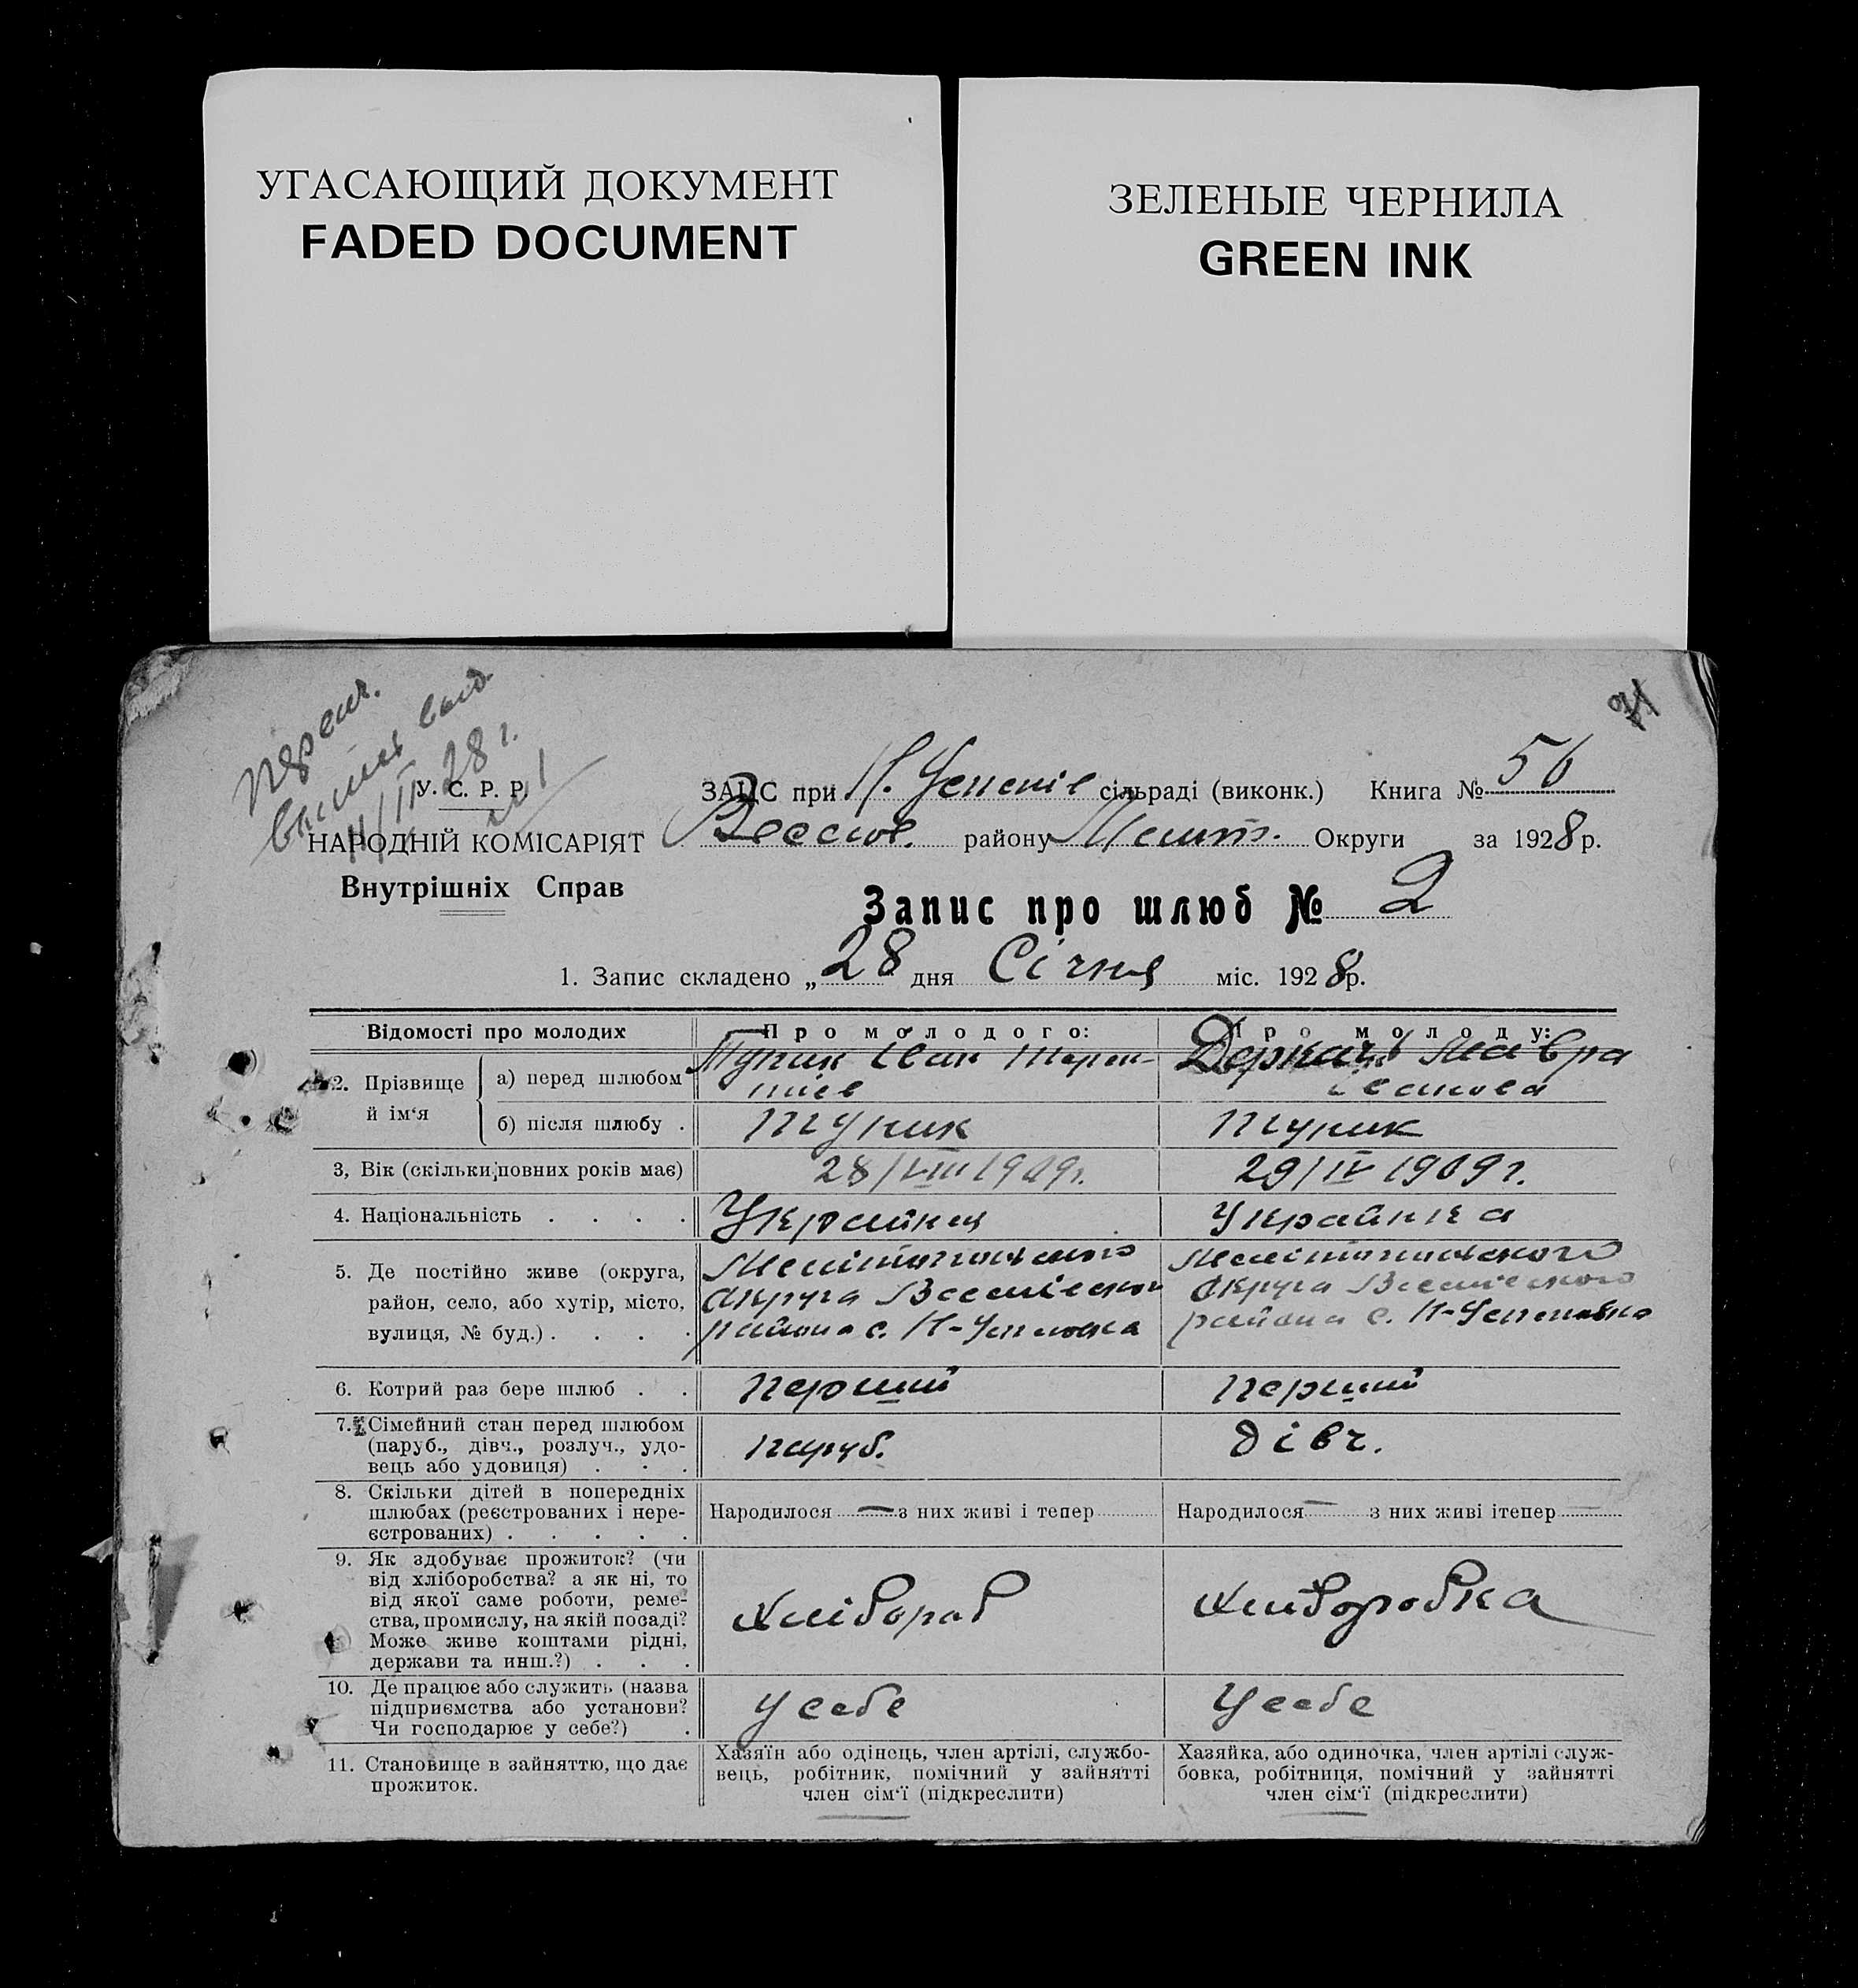 УГАСАЮЩИЙ ДОКУМЕНТ
FADED DOCUMENT
ЗЕЛЕНЫЕ ЧЕРНИЛА
GREEN INK
28 г.
У. С. Р. Р.
НАРОДНІЙ КОМІСАРІЯТ
Внутрішніх Справ
ЗАЦС при Н. Успенів сільраді (виконк.) Книга № 56
Весел. району Меліт. Округи за 1928 р.
Запис про шлюб № 2
1. Запис складено „ 28 дня Січня міс. 1928 р.
Відомості про молодих
Про молодого:
Про молоду:
2. Прізвище й ім'я
а) перед шлюбом
Тупик Іван Терен-
тіев
Деркачь Мавра
Іванова
б) після шлюбу .
Тупик
Тупик
3, Вік (скільки повних років має)
28/VIII 1909г.
29/IV 1909 г.
4. Національність . . . .
Україінец
Украйінка
5. Де постійно живе (округа,
район, село, або хутір, місто,
вулиця, № буд.) . . . .
Мелітопольского
Округа Веселівского
района с. Н-Успеновка
Мелітопольского
Округа Веселівского
района с. Н-Успеновка
6. Котрий раз бере шлюб . .
Перший
Перший
7. Сімейний стан перед шлюбом
(паруб., дівч., розлуч., удо-
вець або удовиця) . . .
паруб.
дівч.
8. Скільки дітей в попередніх
шлюбах (реєстрованих і нере-
єстрованих) . . . . .
Народилося — з них живі і тепер
Народилося — з них живі ітепер —
9. Як здобуває прожиток? (чи
від хліборобства? а як ні, то
від якої саме роботи, реме-
ства, промислу, на якій посаді?
Може живе коштами рідні,
держави та инш.?) . . .
хлібороб
хліборобка
10. Де працює або служить (назва
підприємства або установи?
Чи господарює у себе?) .
у себе
У себе
11. Становище в зайняттю, що дає
прожиток.
Хазяїн або одінець, член артілі, службо-
вець, робітник, помічний у зайнятті
член сім'ї (підкреслити)
Хазяйка, або одиночка, член артілі служ-
бовка, робітниця, помічний у зайнятті
член сім'ї (підкреслити)